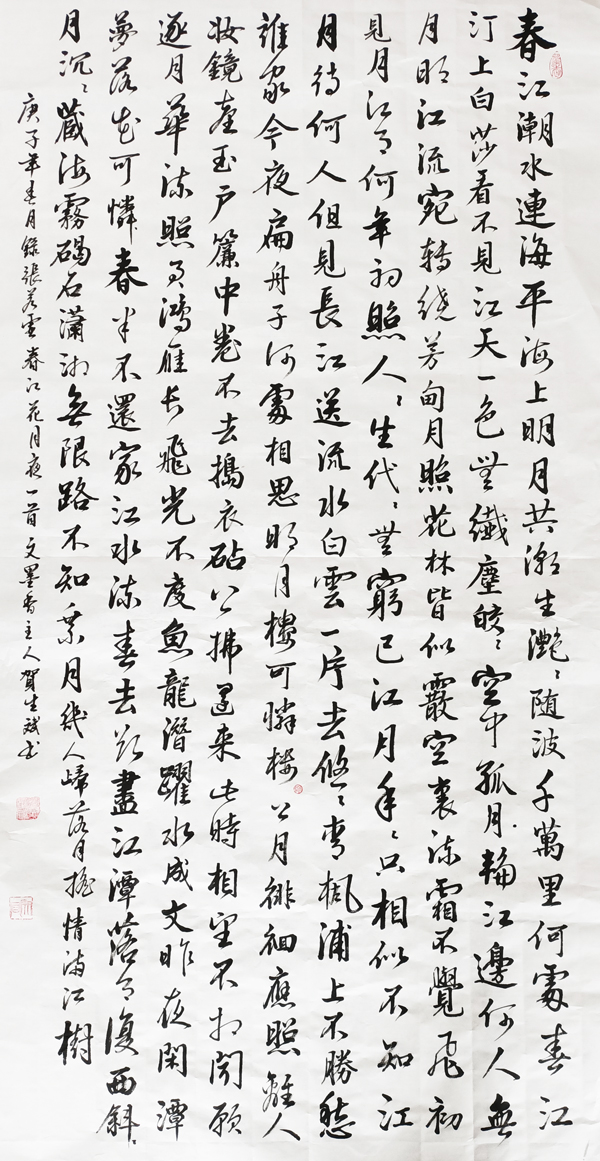 春江潮水連海平海上明月共潮生灔〻随波千萬里何處春江
汀上白莎看不見江天一色無纖塵皎〻空中孤月輪江邊何人無
月明江流宛轉繞芳甸月照花林皆似霰空裏流霜不覺飛初
見月江月何年初照人〻生代〻無窮已江月年〻只相似不知江
月待何人但見長江送流水白雲一片去悠〻青楓浦上不勝愁
誰家今夜扁舟子何處相思明月樓可憐樓上月徘徊應照離人
妝鏡臺玉戶簾中卷不去搗衣砧上拂還來此時相望不相聞願
逐月華流照君鴻雁長飛光不度魚龍潛躍水成文昨夜閑潭
夢落花可憐春半不還家江水流春去欲盡江潭落月復西斜〻
月沉〻藏海霧碣石瀟湘無限路不知乘月幾人歸落月搖情滿江樹
庚子年春月錄張若虛春江花月夜一首文墨香主人賀生斌書